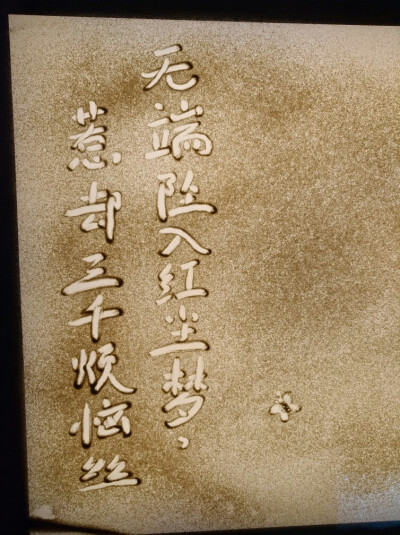 无端坠入红尘梦，
惹却三千烦恼丝